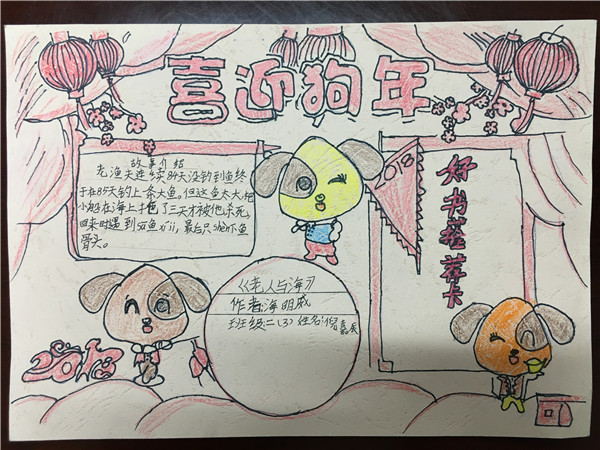 喜迎狗年
故事介绍
老渔夫连续84天没钓到鱼终
于在85天钓上一条大鱼。但这鱼太大,把
小船在海上拖了三天才被他杀死。
回来时遇到sa鱼xíjí,最后只shèn下鱼
骨头。
2018
好书推荐卡
《老人与海》
作者:海明威
班级:二(3)姓名:
2018